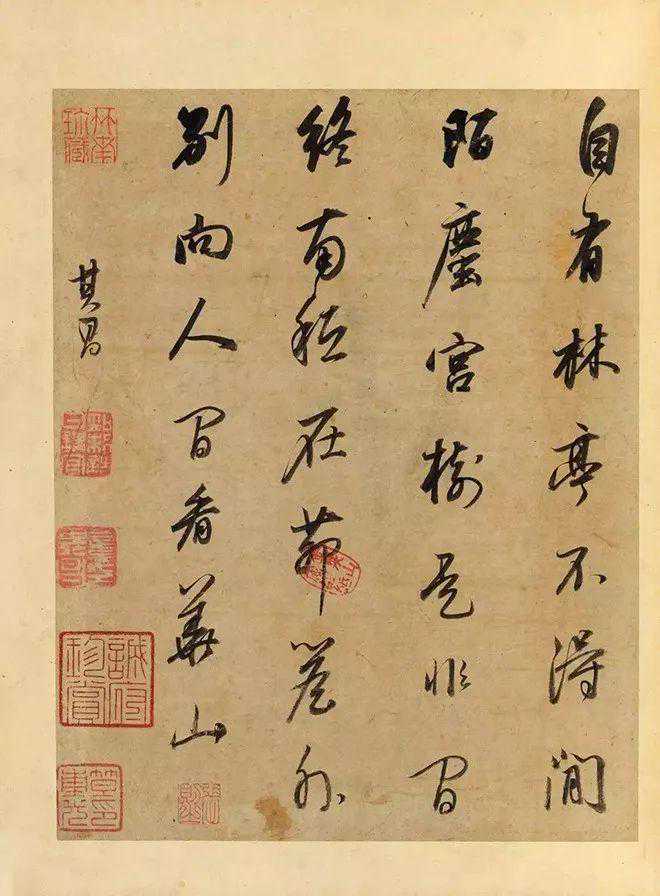 自有林亭不得閒
陌塵宮樹是非間
終南秪在茆簷外
別向人間看華山
其昌